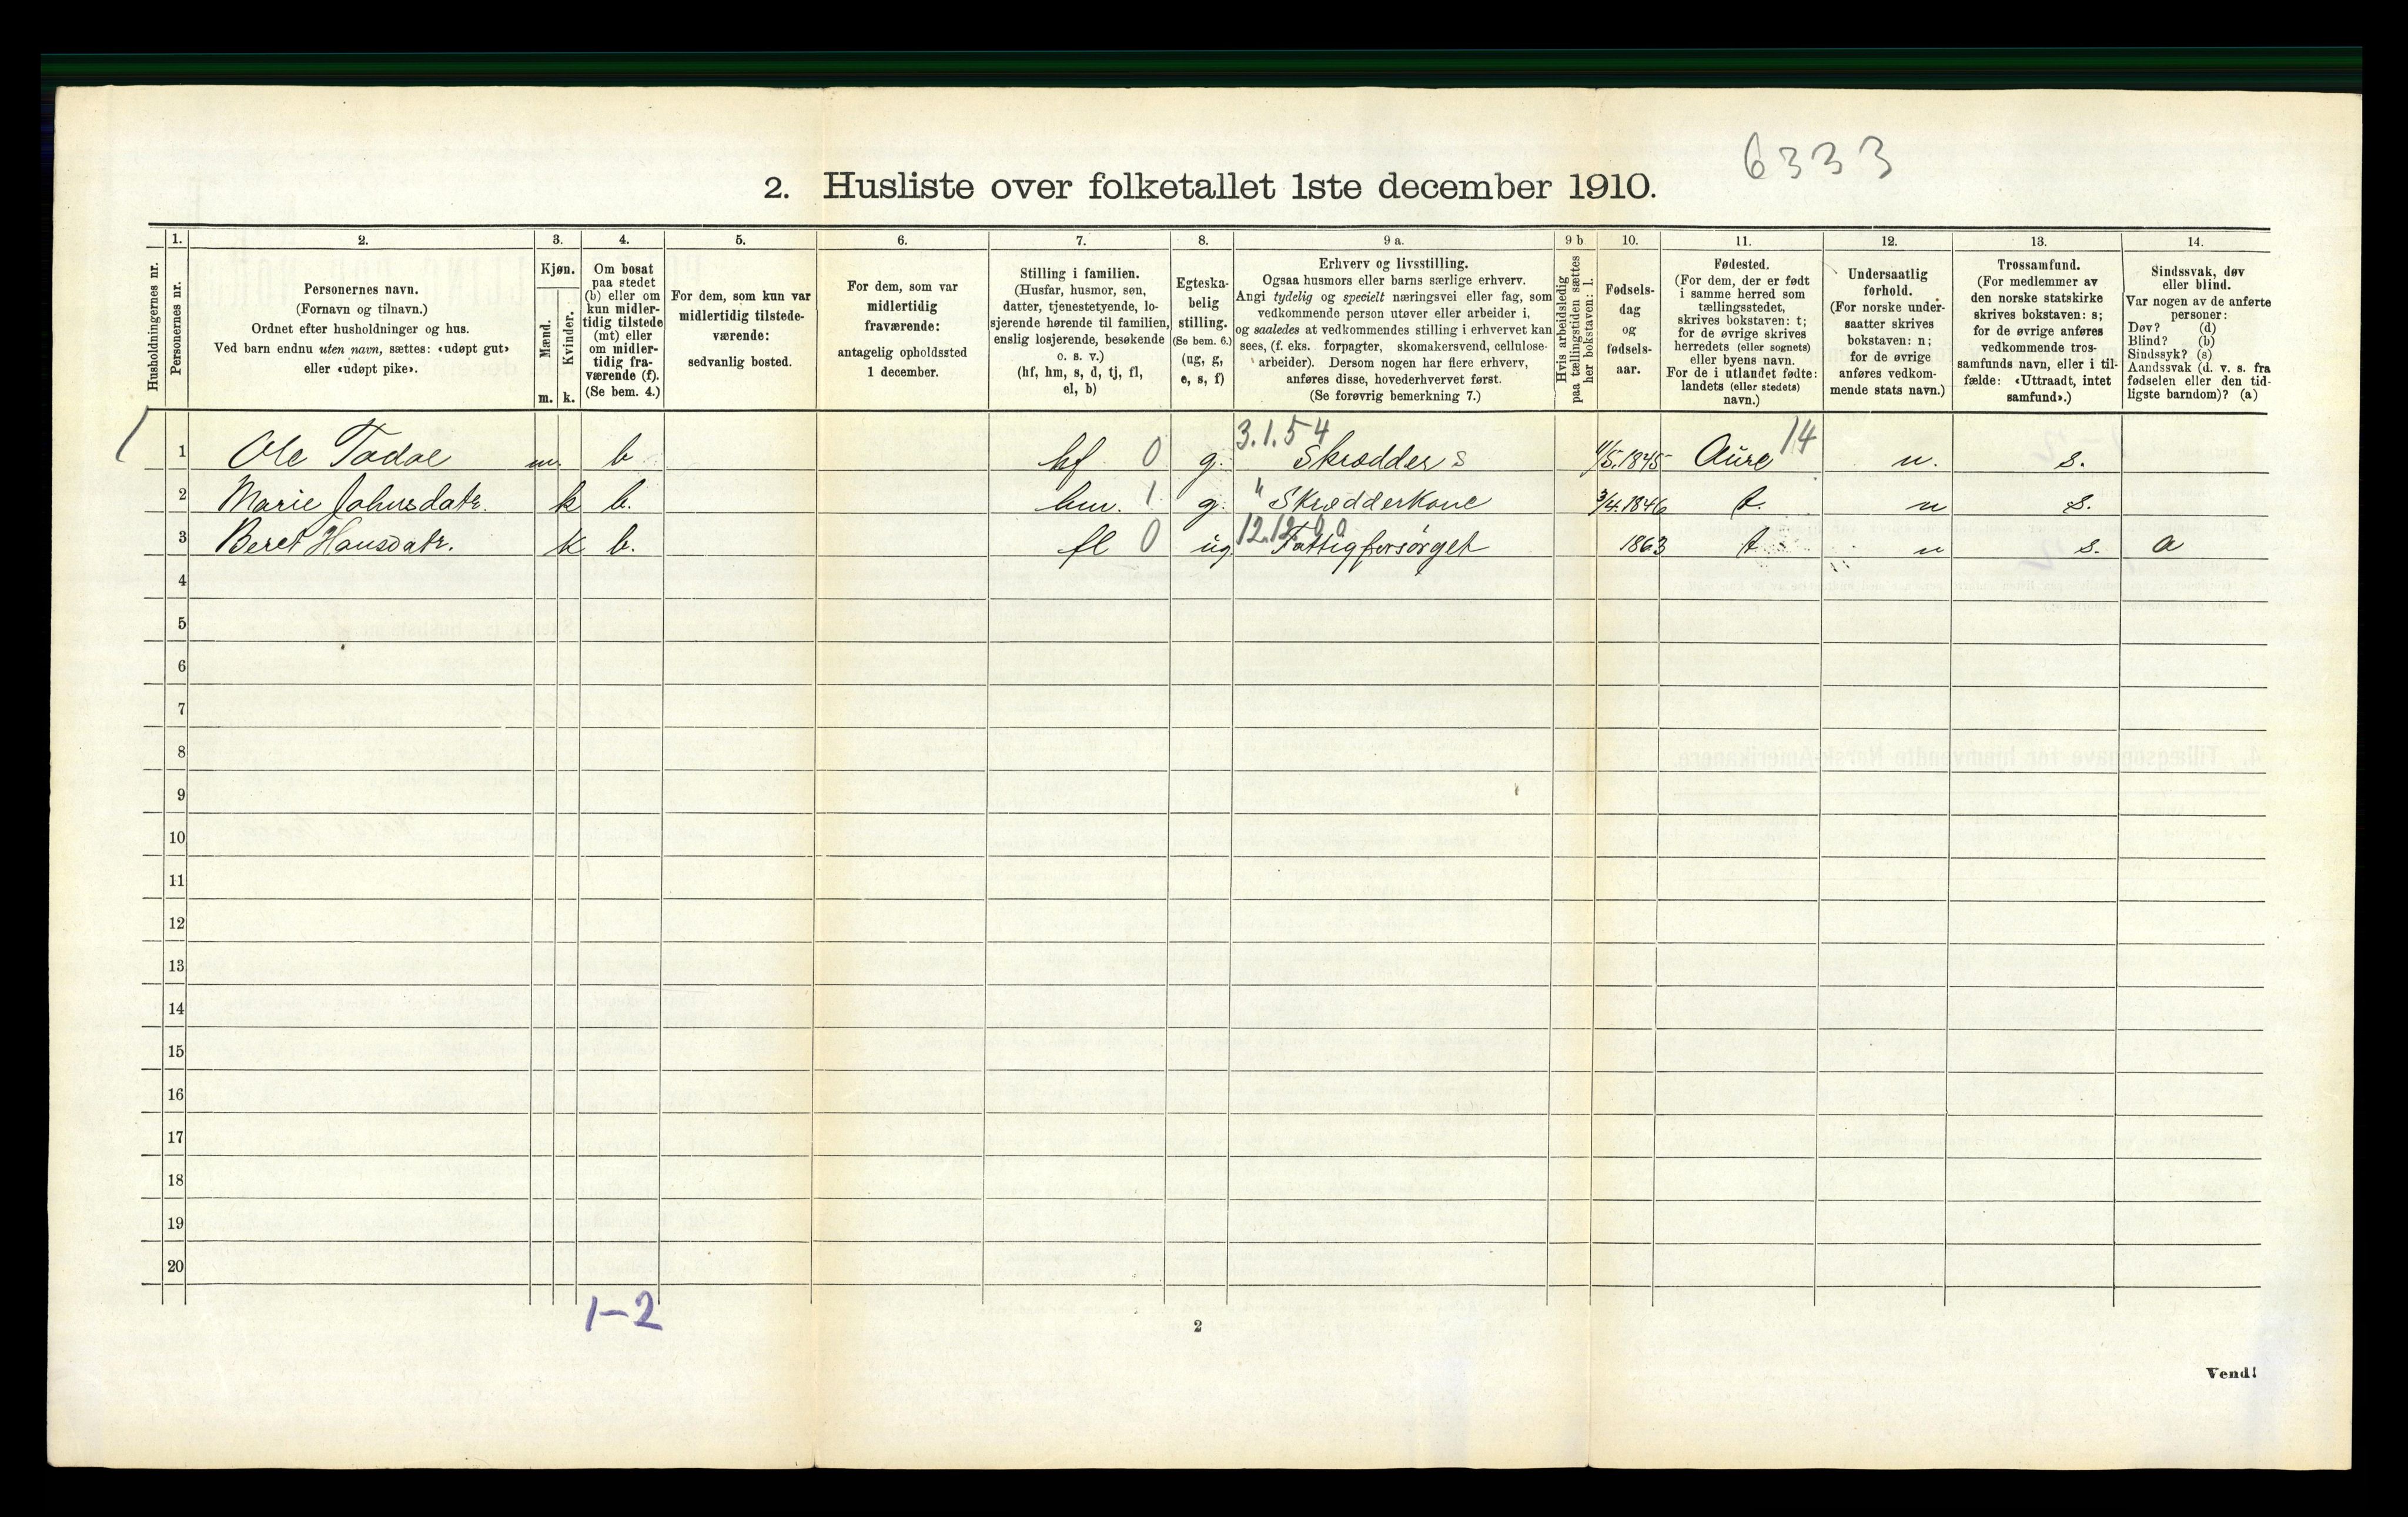 6333
2. Husliste over folketallet 1ste december 1910.
Husholdningernes nr.
1.
Personernes nr.
2.
Personernes navn.
(Fornavn og tilnavn.)
Ordnet efter husholdninger og hus.
Ved barn endnu uten navn, sættes: «udøpt gut»
eller «udøpt pike».
3.
Kjøn.
Mænd.
Kvinder.
m. k.
4.
Om bosat
paa stedet
(b) eller om
kun midler-
tidig tilstede
(mt) eller
om midler-
tidig fra-
værende (f).
(Se bem. 4.)
5.
For dem, som kun var
midlertidig tilstede-
værende:
sedvanlig bosted.
6.
For dem, som var
midlertidig
fraværende:
antagelig opholdssted
1 december.
7.
Stilling i familien.
(Husfar, husmor, søn,
datter, tjenestetyende, lo-
sjerende hørende til familien,
enslig losjerende, besøkende
o. s. v.)
(hf, hm, s, d, tj, fl,
el, b)
8.
Egteska-
belig
stilling.
(Se bem. 6.)
(ug, g,
e, s, f)
9 a.
Erhverv og livsstilling.
Ogsaa husmors eller barns særlige erhverv.
Angi tydelig og specielt næringsvei eller fag, som
vedkommende person utøver eller arbeider i,
og saaledes at vedkommendes stilling i erhvervet kan
sees, (f. eks. forpagter, skomakersvend, cellulose-
arbeider). Dersom nogen har flere erhverv,
anføres disse, hovederhvervet først.
(Se forøvrig bemerkning 7.)
9 b
Hvis arbeidsledig
paa tællingstiden sættes
her bokstaven: l.
10.
Fødsels-
dag
og
fødsels-
aar.
11.
Fødested.
(For dem, der er født
i samme herred som
tællingsstedet,
skrives bokstaven: t;
for de øvrige skrives
herredets (eller sognets)
eller byens navn.
For de i utlandet fødte:
landets (eller stedets)
navn.)
12.
Undersaatlig
forhold.
(For norske under-
saatter skrives
bokstaven: n;
for de øvrige
anføres vedkom-
mende stats navn.)
13.
Trossamfund.
(For medlemmer av
den norske statskirke
skrives bokstaven: s;
for de øvrige anføres
vedkommende tros-
samfunds navn, eller i til-
fælde: «Uttraadt, intet
samfund».)
14.
Sindssvak, døv
eller blind.
Var nogen av de anførte
personer:
Døv? (d)
Blind? (b)
Sindssyk? (s)
Aandssvak (d. v. s. fra
fødselen eller den tid-
ligste barndom)? (a)
3.1.54 14
1 Ole Todal m. b hf 0 g. Skrædder s 1845 Aure n. s.
2 Marie Johnsdatr. k b. hm. 1 g. " Skrædderkone 3/4.1846 t. n s.
12.12.0.0
3 Beret Hansdatr. k b. fl 0 ug Fattigforsørget 1863 t n s. a
4
5
6
7
8
9
10
11
12
13
14
15
16
17
18
19
20
1-2
2
Vend!